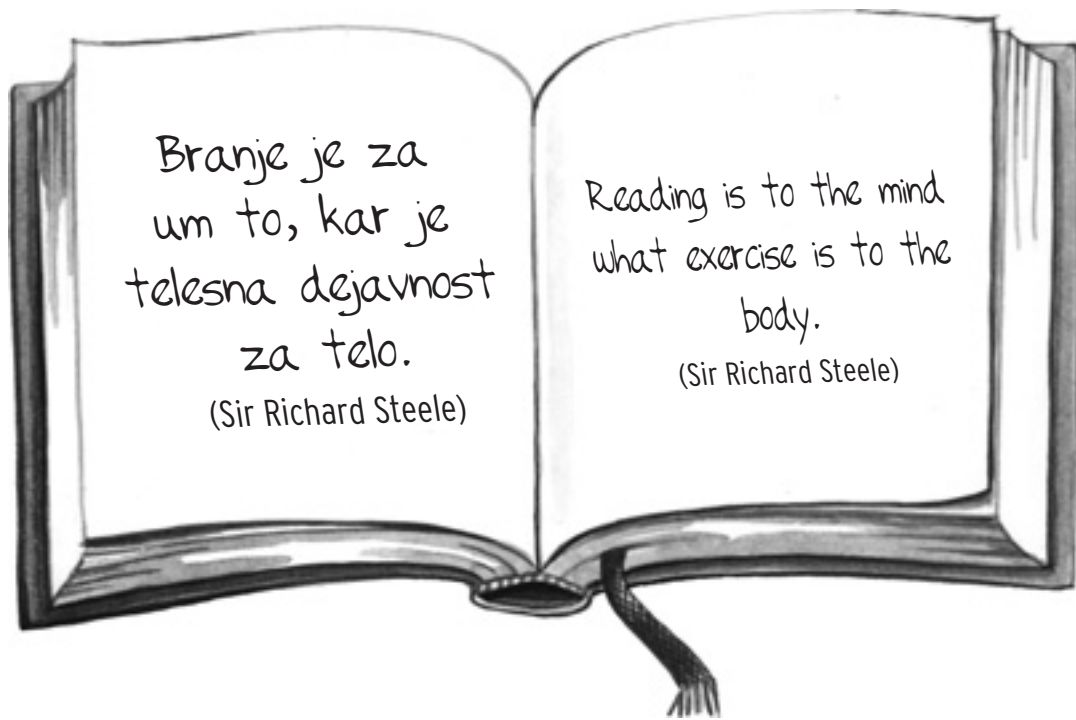 Branje je za
um to, kar je
telesna dejavnost
za telo.
(Sir Richard Steele)
Reading is to the mind
what exercise is to the
body.
(Sir Richard Steele)